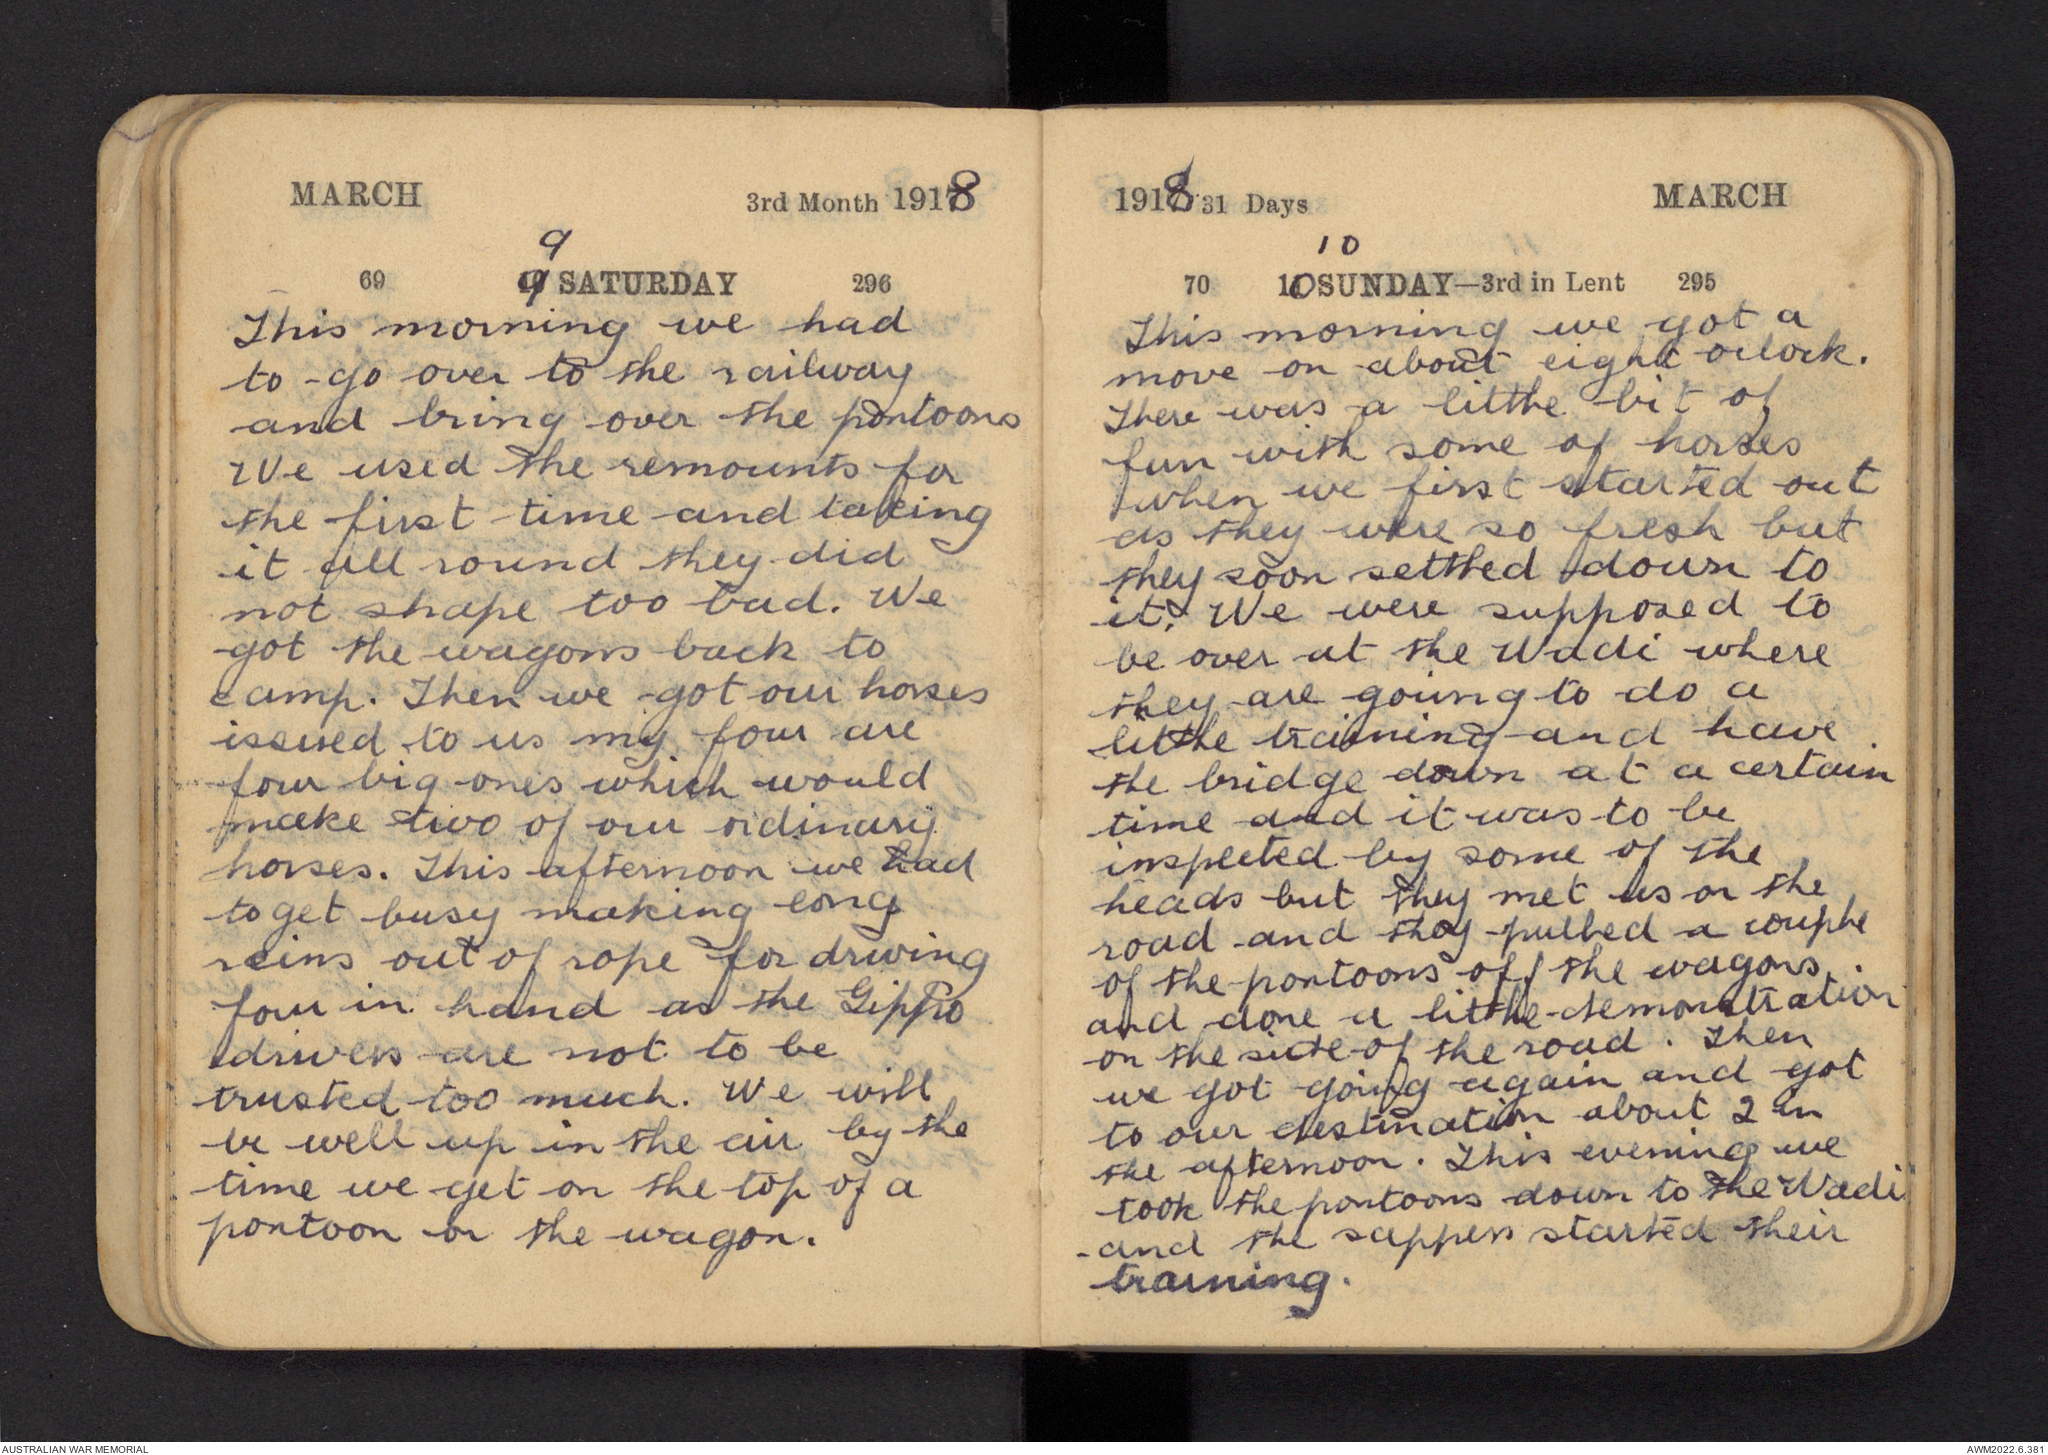 MARCH 3rd Month 1918
9
69 9 SATURDAY 296
This morning we had
to go over to the railway
and bring over the pontoons
We used the remounts for
the first time and taking
it all round they did
not shape too bad. We
got the wagons back to
camp. Then we got our horses
issued to us my four are
four big ones which would
make two of our ordinary
horses. This afternoon we had
to get busy making long
reins out of rope for driving
four in hand as the Gippo
drivers are not to be
trusted too much. We will
be well up in the air by the
time we get on the top of a
pontoon on the wagon.
1918 31 Days MARCH
10
70 10 SUNDAY—3rd in Lent 295
This morning we got a
move on about eight oclock.
There was a little bit of
fun with some of horses
when we first started out
as they were so fresh but
they soon settled down to
it. We were supposed to
be over at the Wadi where
they are going to do a
little training and have
the bridge down at a certain
time and it was to be
inspected by some of the
heads but they met us on the
road and they pulled a couple
of the pontoons off the wagons
and done a little demonstration
on the side of the road. Then
we got going again and got
to our destination about 2 in
the afternoon. This evening we
took the pontoons down to the Wadi
and the sappers started their
training.
AUSTRALIAN WAR MEMORIAL AWM2022.6.381